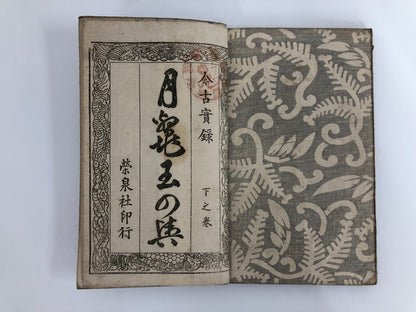 今古實録
下之卷
月鼈玉の輿
榮泉社印行